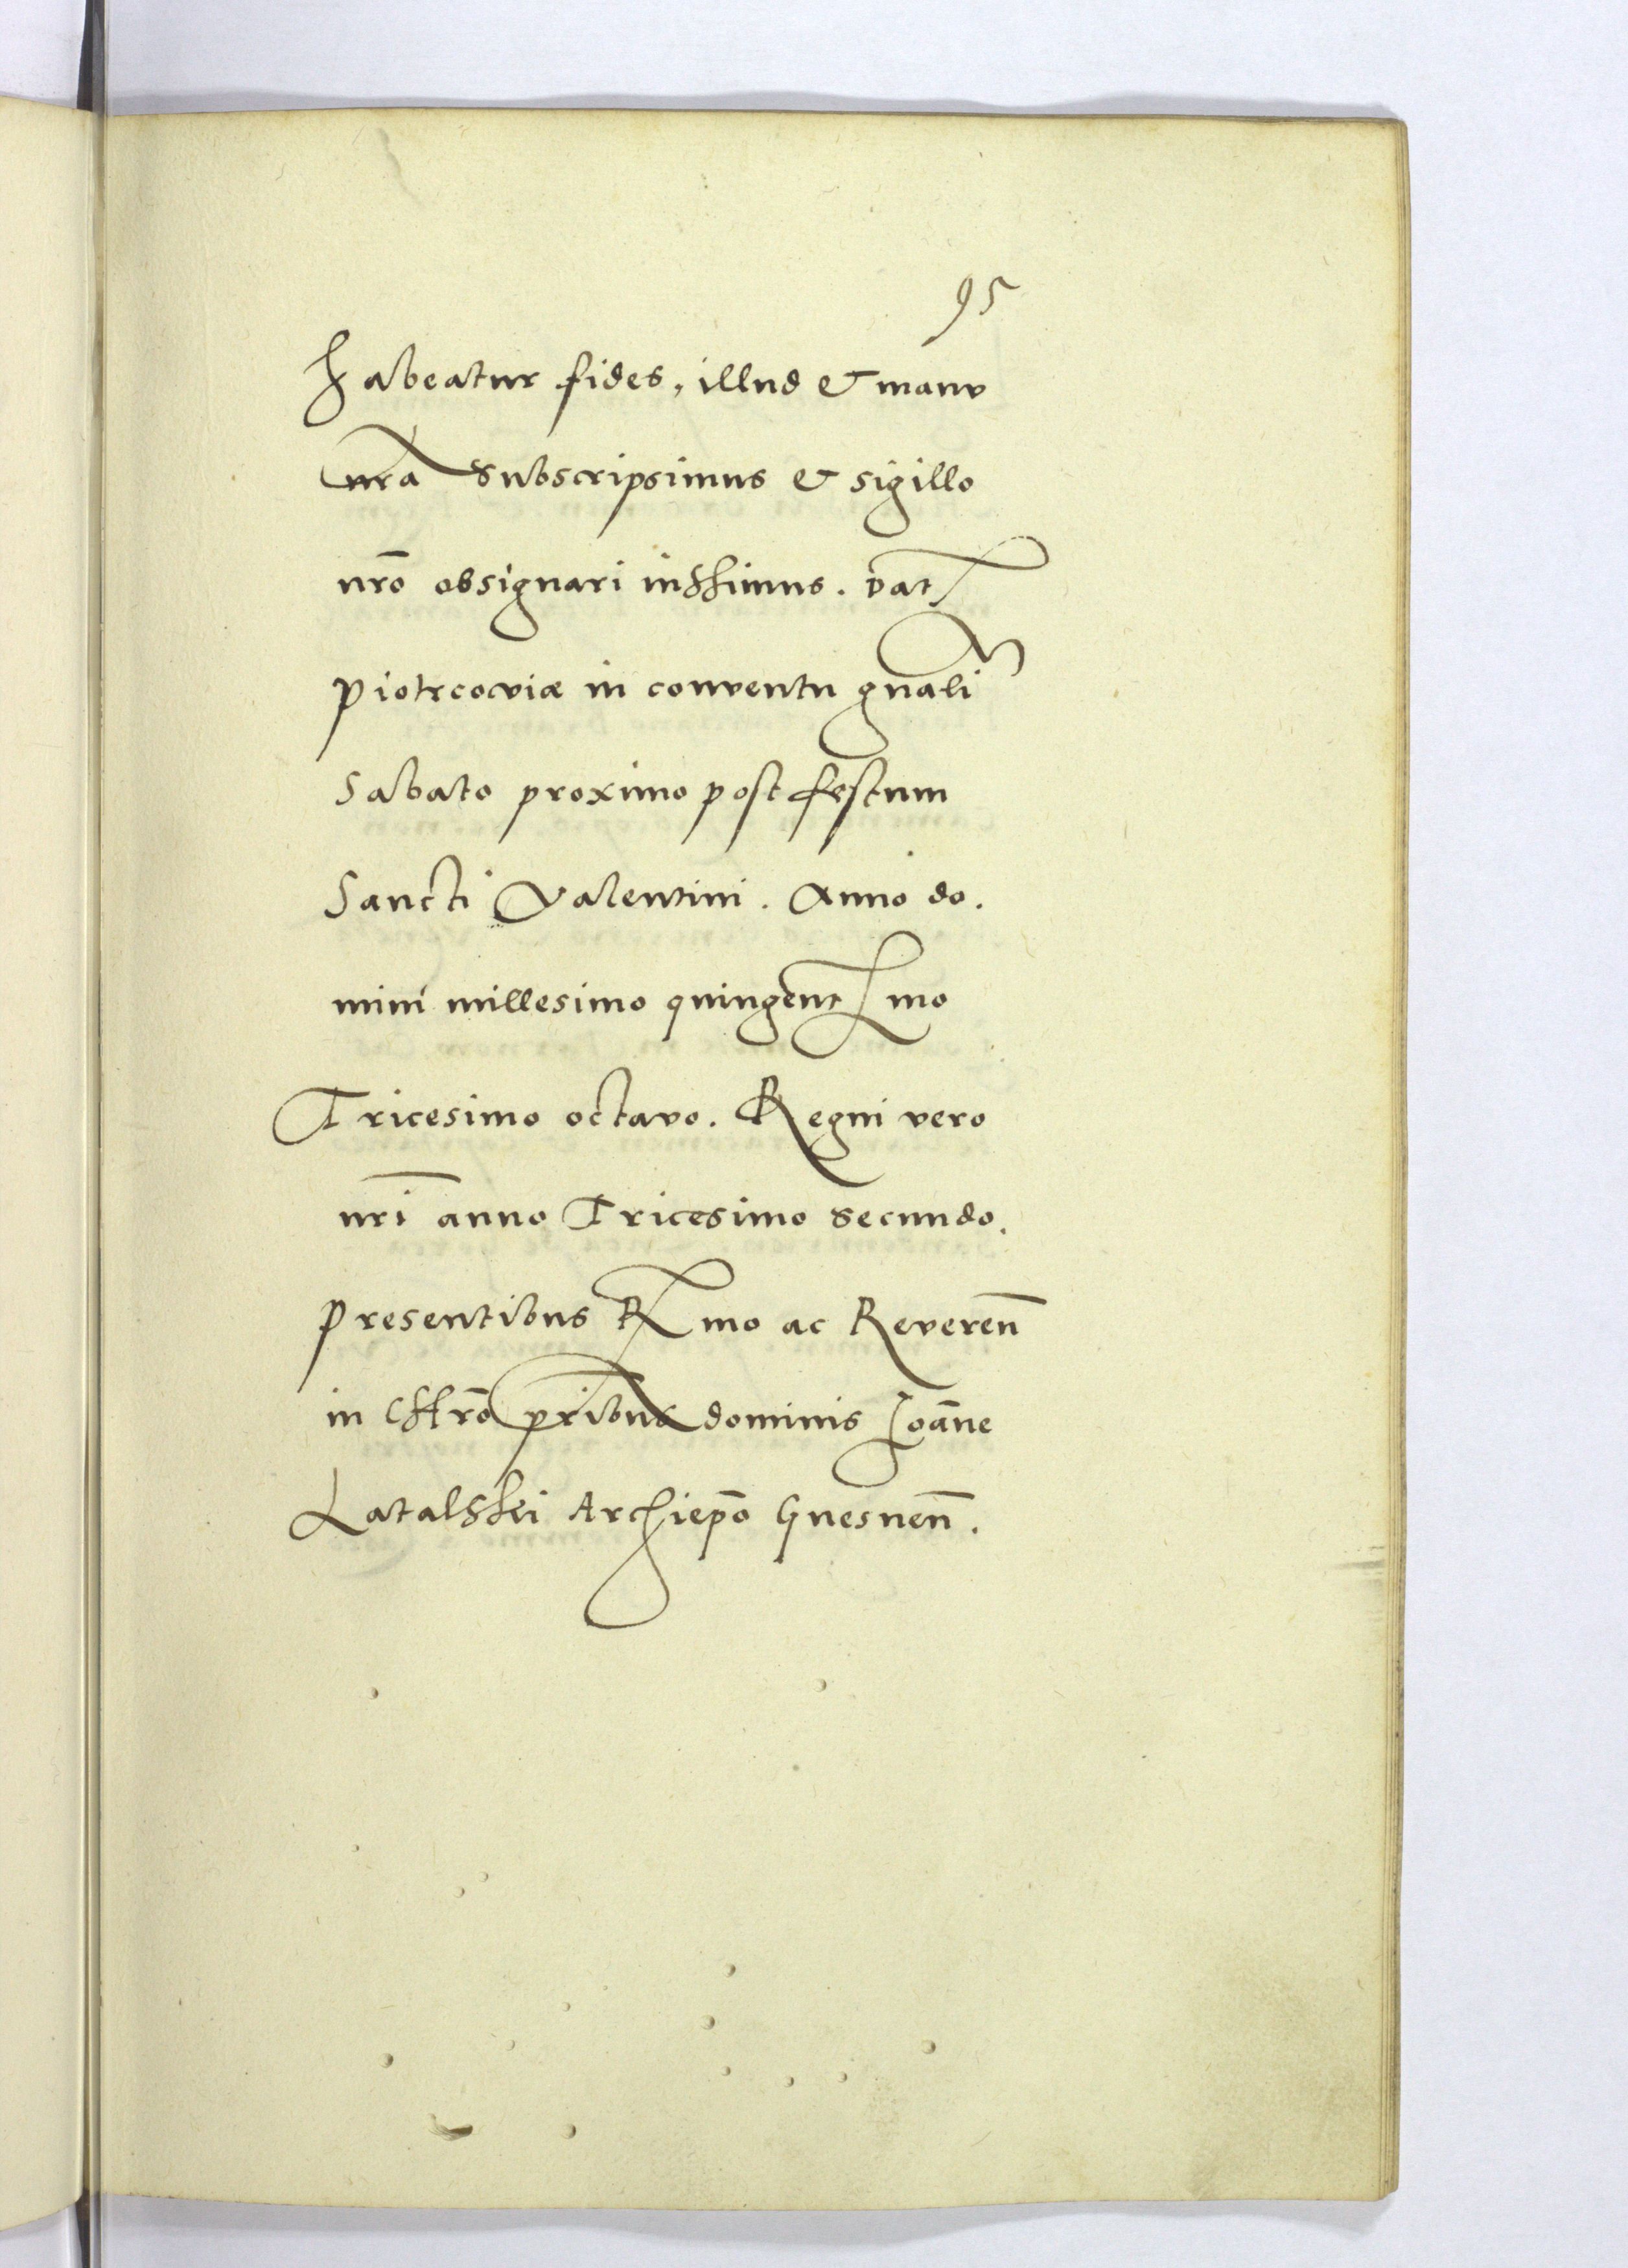 95
habeatur fides, illud & manu
nrã subscripsimus & sigillo
nrõ obsignari iussimus. Dat
Piotrcoviæ in conventu gnali
Sabato proximo post festum
Sancti Valentini. Anno do.
mini millesimo quingent mo
Tricesimo octavo. Regni vero
nrĩ anno Tricesimo secundo.
Presentibus R mo ac Reveren̄
in Chrõ pribus dominis Ioãne
Latalski Archiep̃o Gnesnen̄.